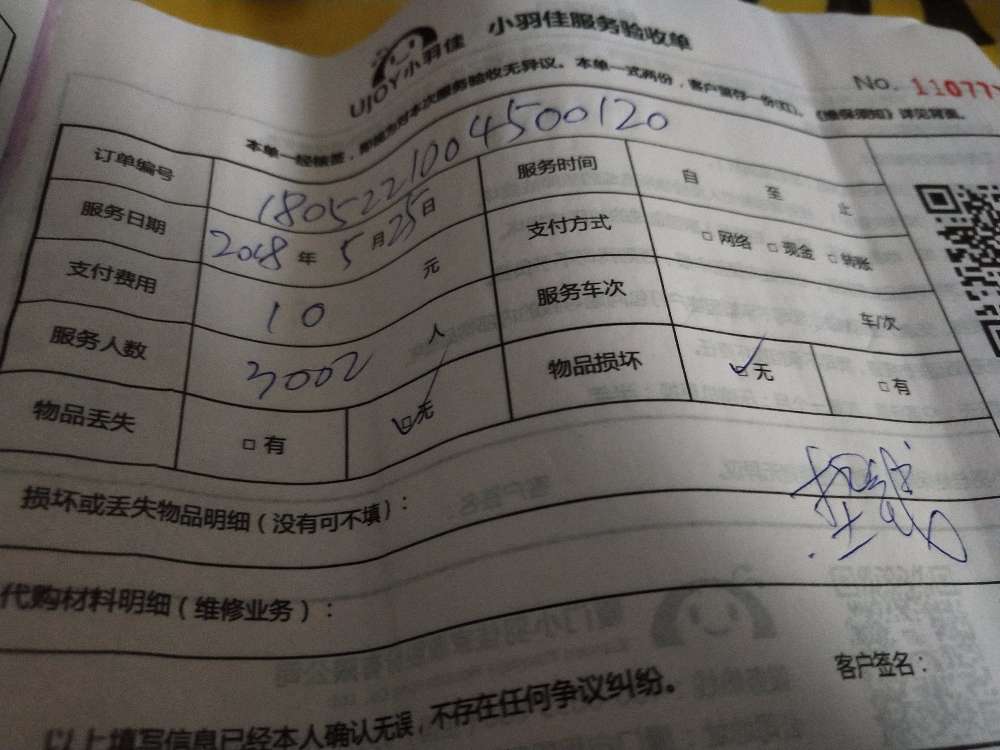 UJOY小羽佳 小羽佳服务验收单
No. 110777
本单一式两份，客户留存一份(红)。《维保须知》详见背面。
订单编号 18052221004500120
服务日期 2018年5月25日 服务时间 自 至 止
支付费用 10 元 支付方式 □网络 □现金 □转账
服务人数 3002 人 服务车次 车/次
物品丢失 □有 ☑无 物品损坏 ☑无 □有
损坏或丢失物品明细（没有可不填）：
代购材料明细（维修业务）：
客户签名：
以上填写信息已经本人确认无误，不存在任何争议纠纷。